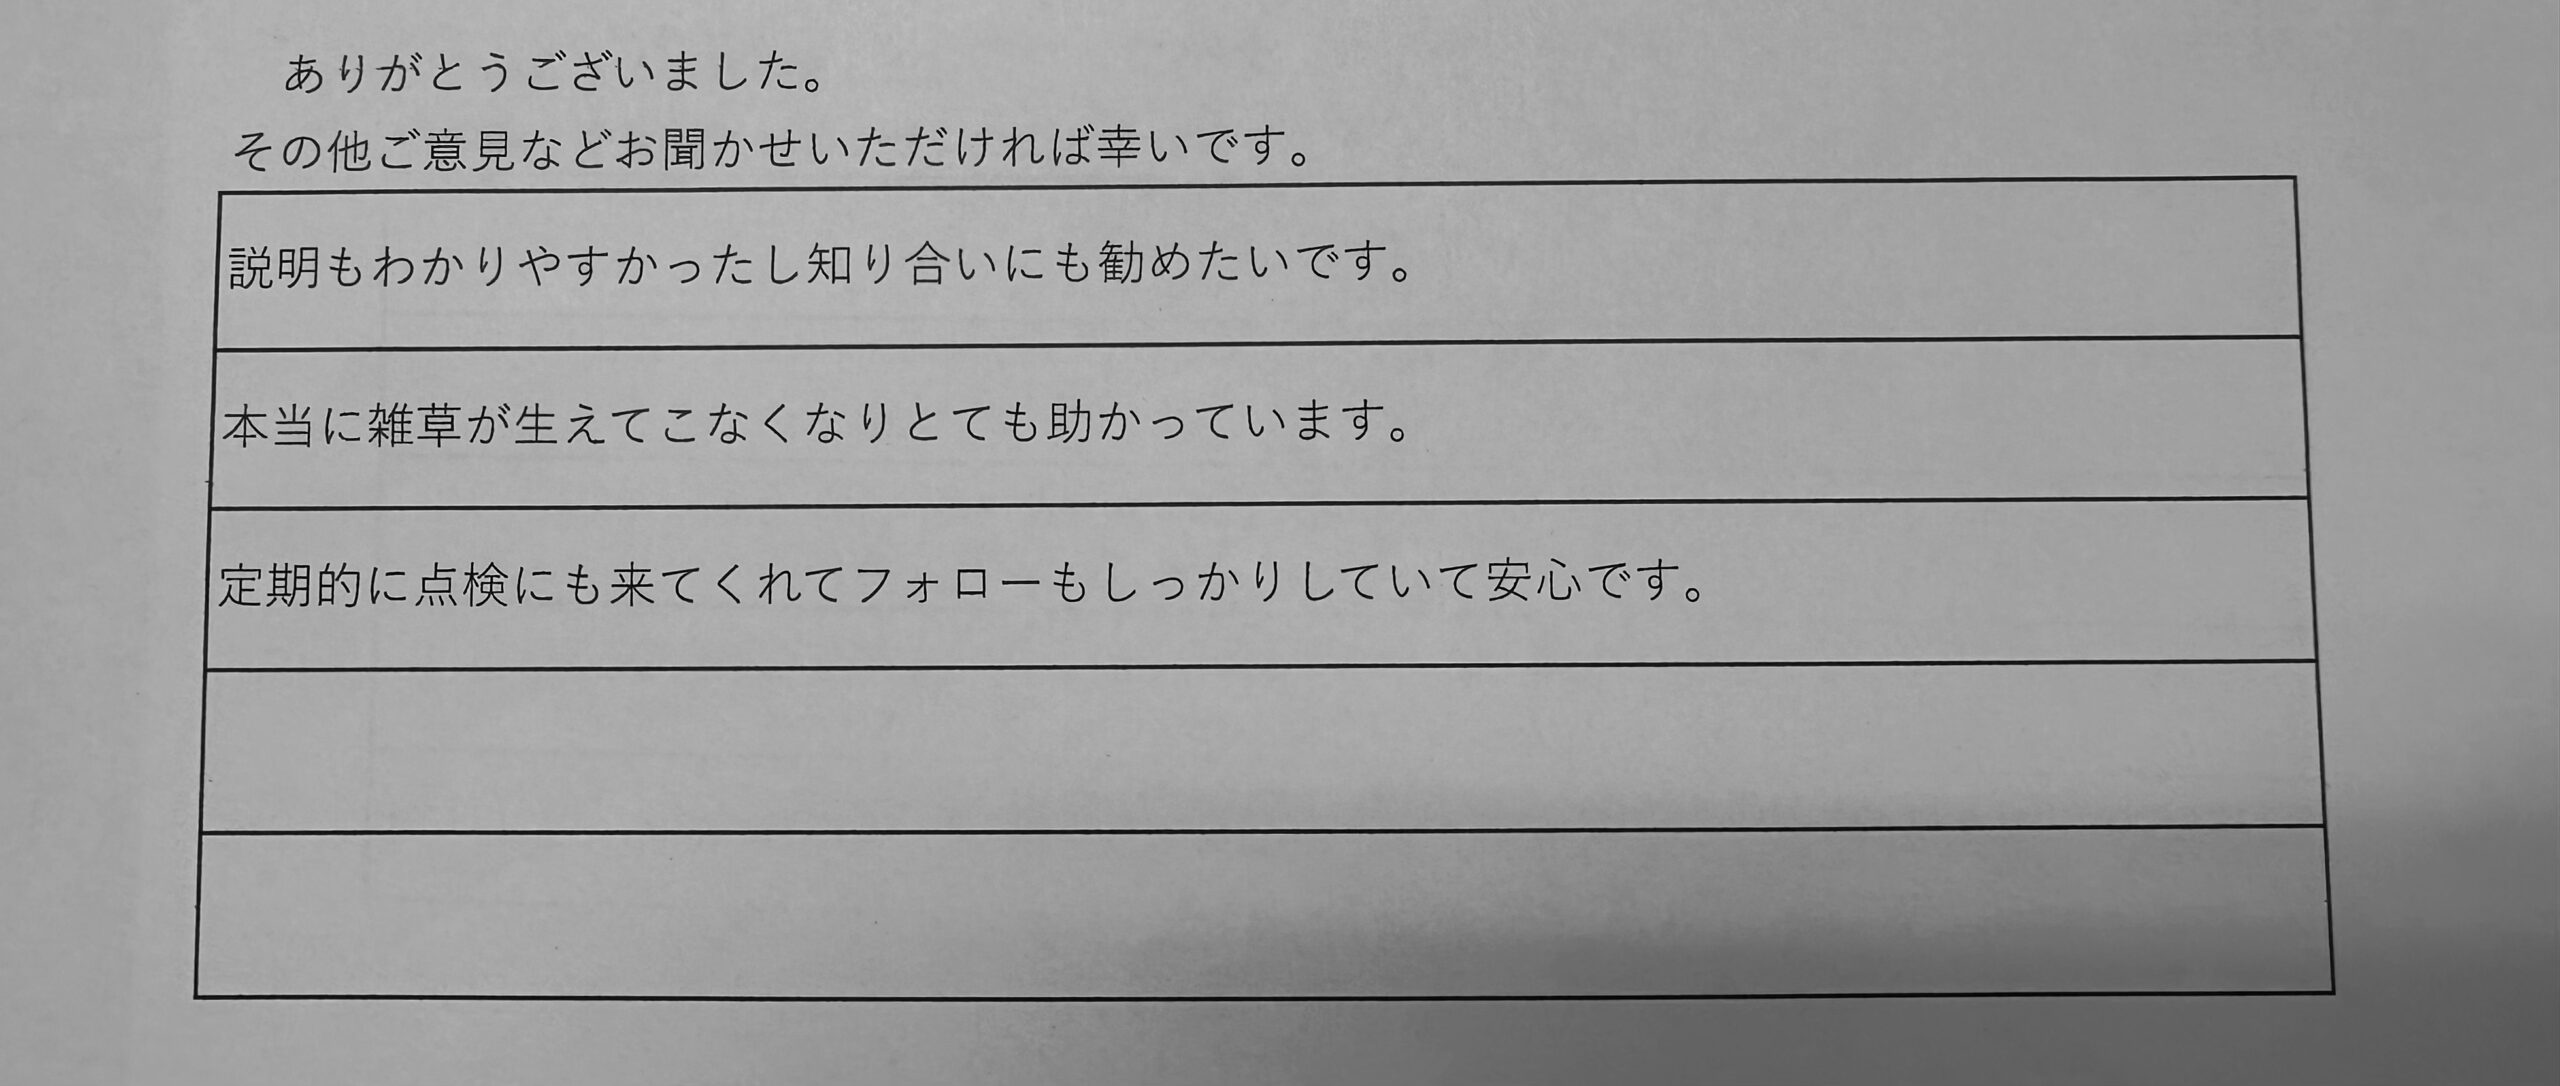 ありがとうございました。
その他ご意見などお聞かせいただければ幸いです。
説明もわかりやすかったし知り合いにも勧めたいです。
本当に雑草が生えてこなくなりとても助かっています。
定期的に点検にも来てくれてフォローもしっかりしていて安心です。